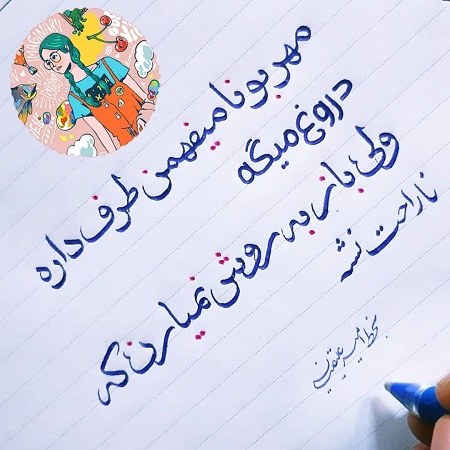 مهربونا میفهمن طرف داره
دروغ میگه
ولی باز به روش نمیارن که
ناراحت نشه
بخط امیر